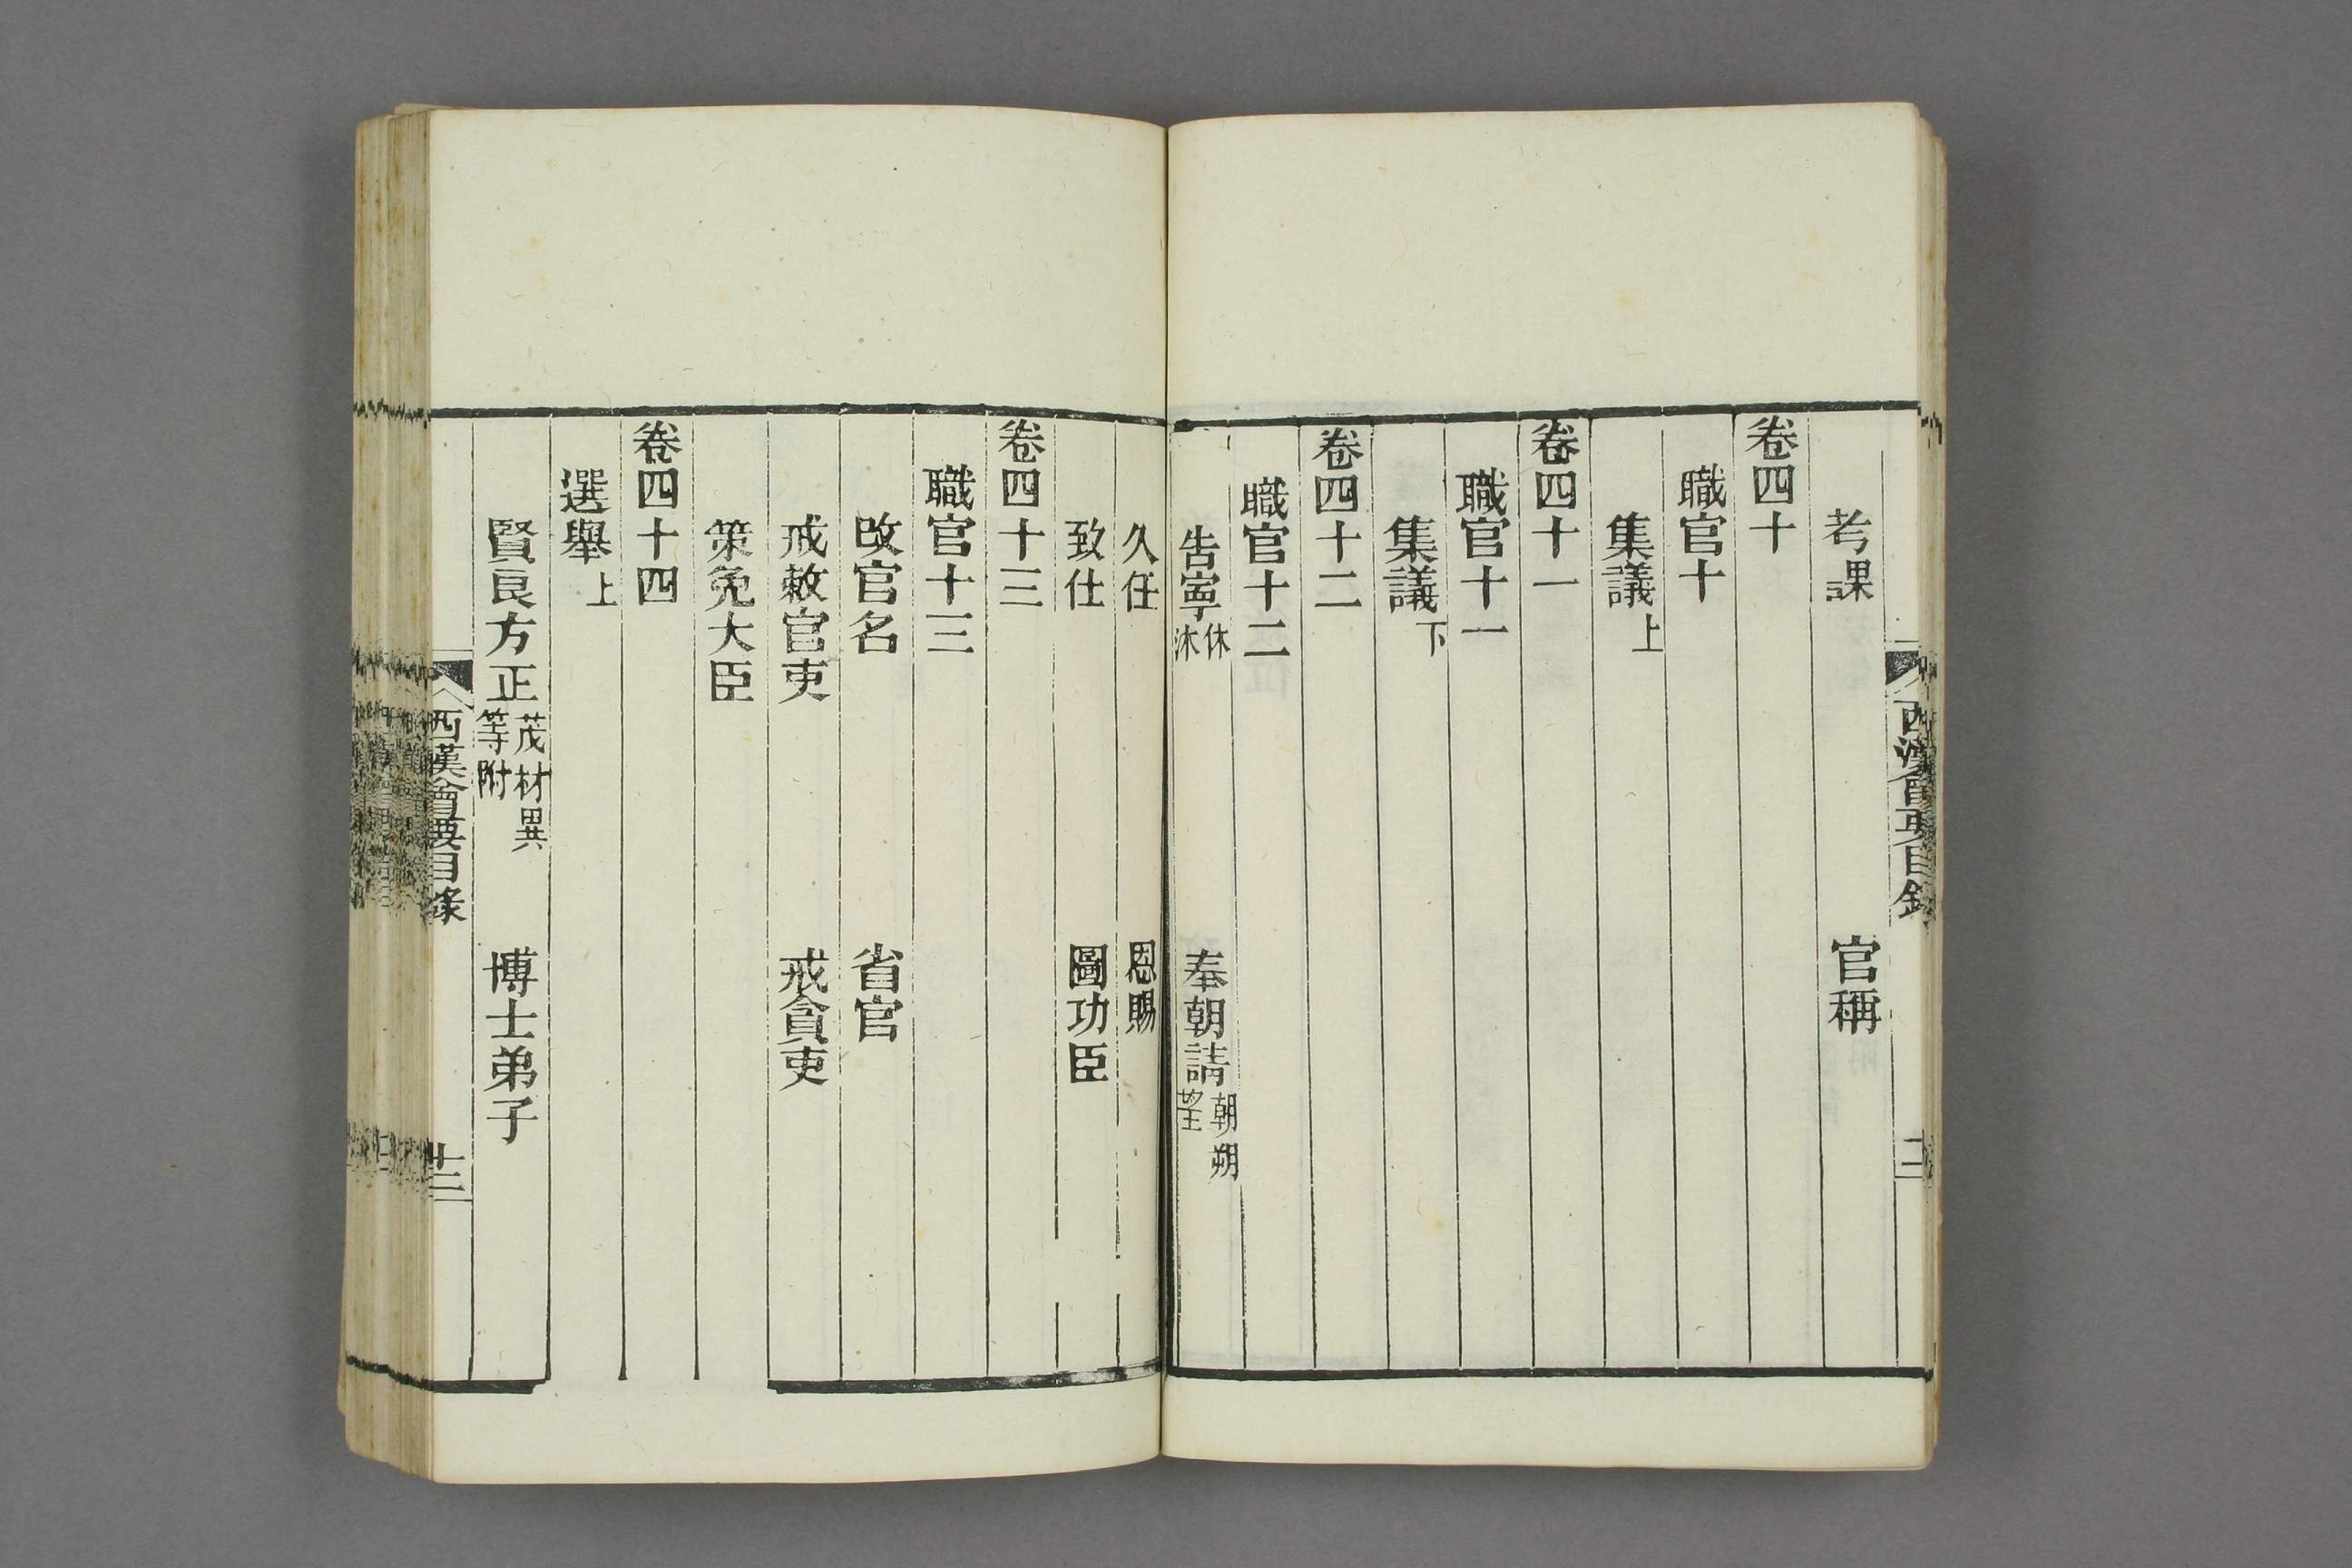 西漢會要目錄
考課 官稱
卷四十
職官十
集議上
卷四十一
職官十一
集議下
卷四十二
職官十二
告寧休沐 奉朝請朝朔望
久任 恩賜
致仕 圖功臣
卷四十三
職官十三
改官名 省官
戒敕官吏 戒貪吏
策免大臣
卷四十四
選舉上
賢良方正茂材異等附 博士弟子
西漢會要目錄